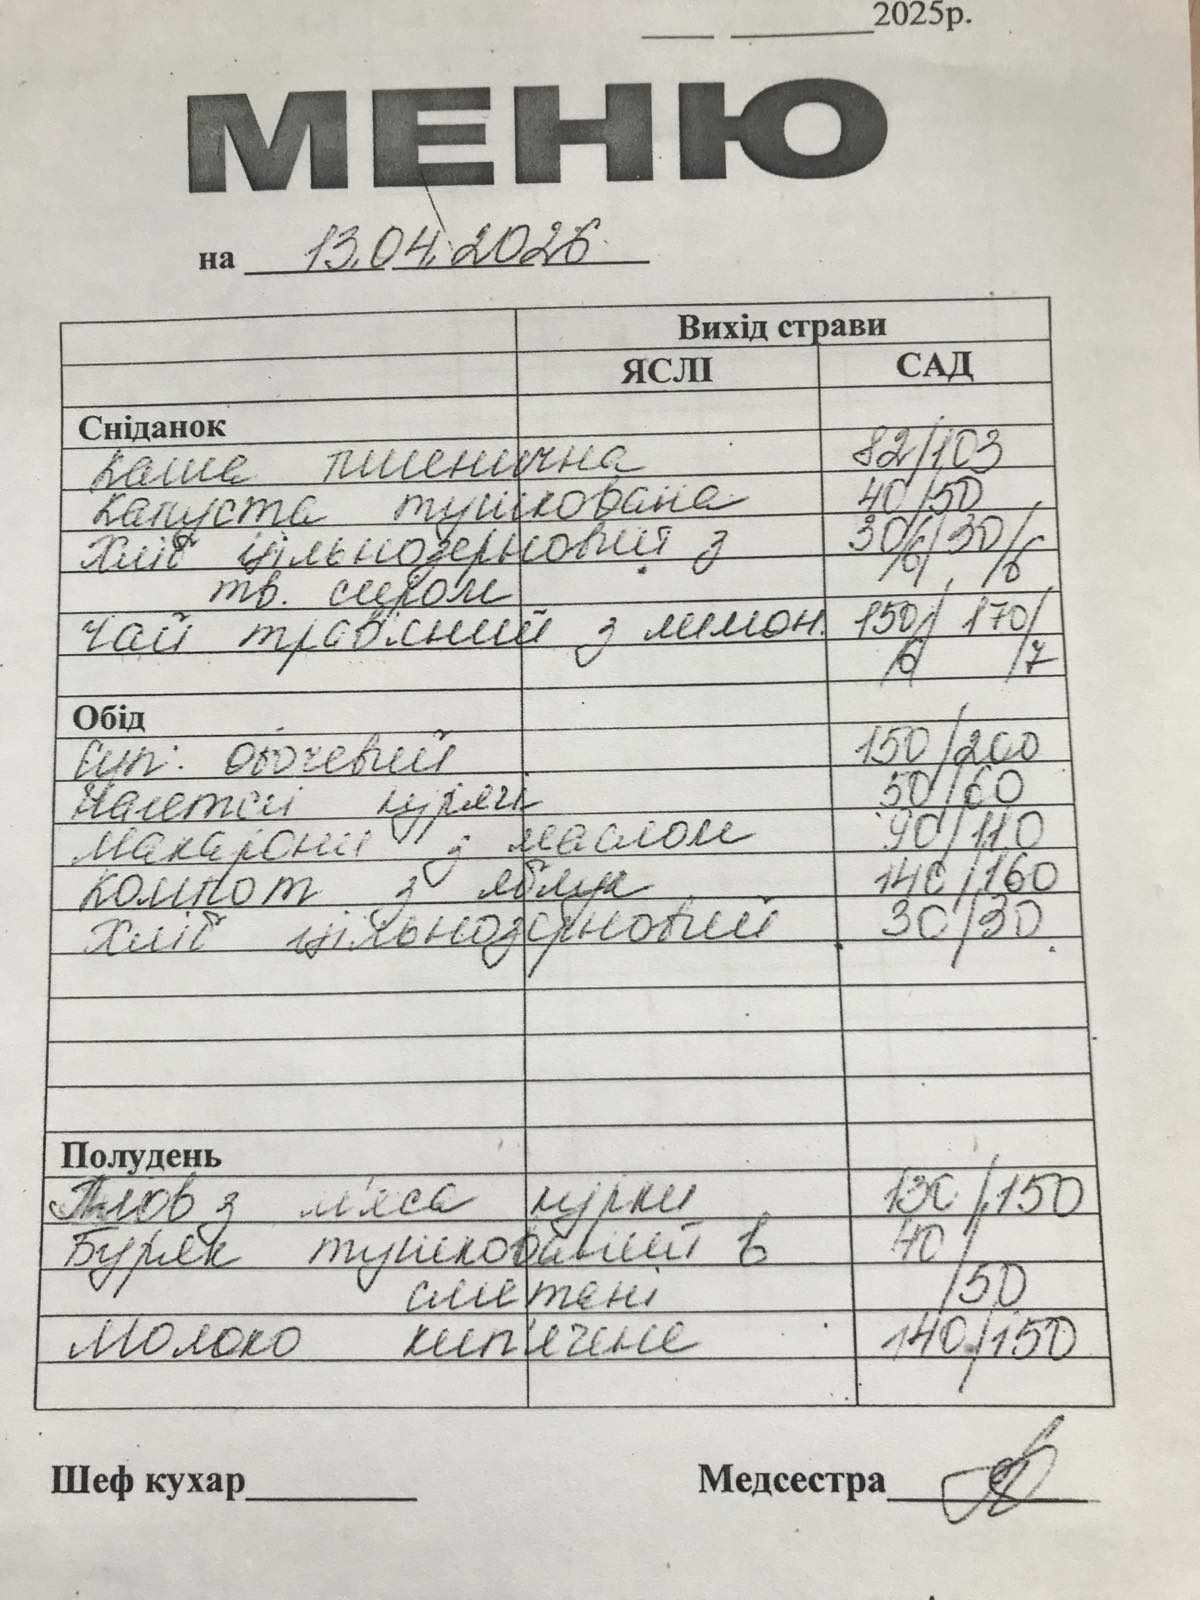 2025р.
МЕНЮ
на 13.04.2026
Вихід страви
ЯСЛІ САД
Сніданок
Каша пшенична 82/103
Капуста тушкована 40/50
Хліб цільнозерновий з 30/6/30/6
тв. сиром
Чай трав'яний з лимон. 150/6 170/7
Обід
Суп: овочевий 150/200
Нагетси курячі 50/60
Макарони з маслом 90/110
Компот з яблук 140/160
Хліб цільнозерновий 30/30
Полудень
Плов з м'яса курки 130/150
Буряк тушкований в 40/
сметані /50
Молоко кип'ячене 140/150
Шеф кухар Медсестра